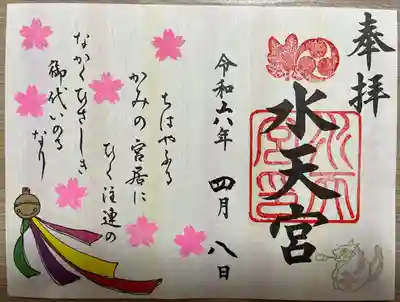 奉拝
水天宮
令和六年 四月 八日
ちはやふる
かみの宮居に
ひく注連の
なかくひさしき
御代いのる
なり